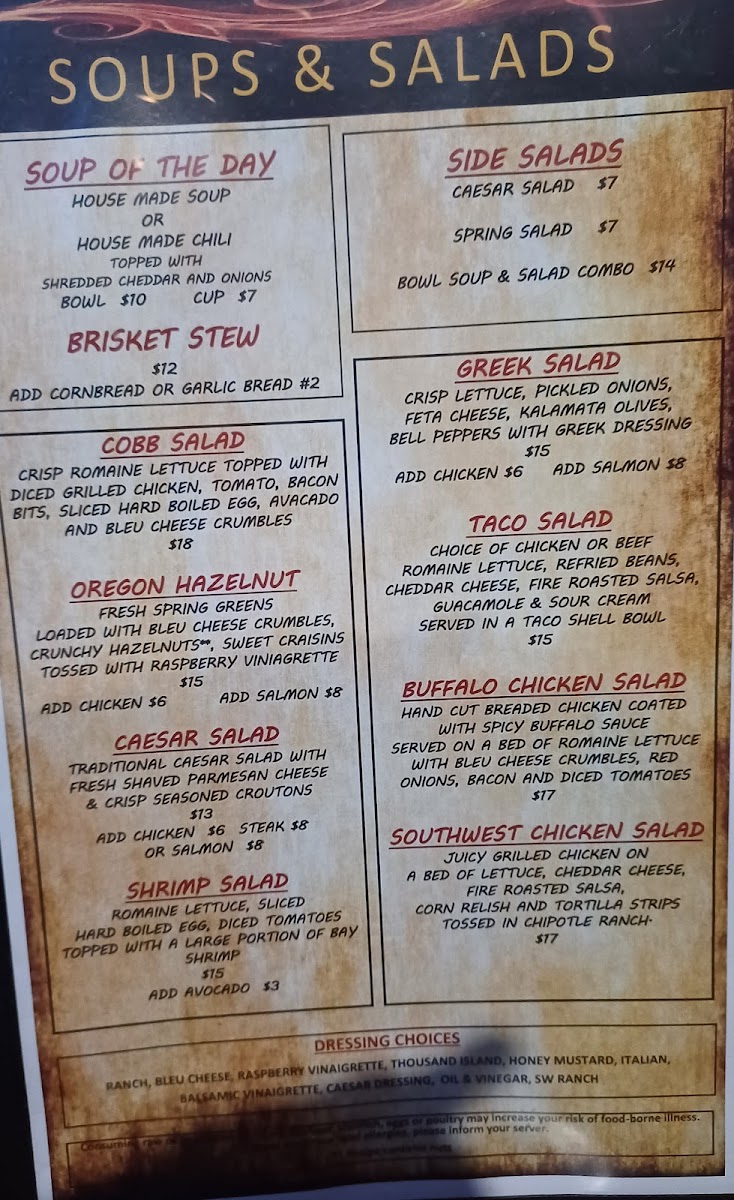 SOUPS & SALADS
SOUP OF THE DAY
HOUSE MADE SOUP
OR
HOUSE MADE CHILI
TOPPED WITH
SHREDDED CHEDDAR AND ONIONS
BOWL $10 CUP $7
BRISKET STEW
$12
ADD CORNBREAD OR GARLIC BREAD #2
SIDE SALADS
CAESAR SALAD $7
SPRING SALAD $7
BOWL SOUP & SALAD COMBO $14
COBB SALAD
CRISP ROMAINE LETTUCE TOPPED WITH
DICED GRILLED CHICKEN, TOMATO, BACON
BITS, SLICED HARD BOILED EGG, AVACADO
AND BLEU CHEESE CRUMBLES
$18
OREGON HAZELNUT
FRESH SPRING GREENS
LOADED WITH BLEU CHEESE CRUMBLES,
CRUNCHY HAZELNUTS**, SWEET CRAISINS
TOSSED WITH RASPBERRY VINIAGRETTE
$15
ADD CHICKEN $6 ADD SALMON $8
CAESAR SALAD
TRADITIONAL CAESAR SALAD WITH
FRESH SHAVED PARMESAN CHEESE
& CRISP SEASONED CROUTONS
$13
ADD CHICKEN $6 STEAK $8
OR SALMON $8
SHRIMP SALAD
ROMAINE LETTUCE, SLICED
HARD BOILED EGG, DICED TOMATOES
TOPPED WITH A LARGE PORTION OF BAY
SHRIMP
$15
ADD AVOCADO $3
GREEK SALAD
CRISP LETTUCE, PICKLED ONIONS,
FETA CHEESE, KALAMATA OLIVES,
BELL PEPPERS WITH GREEK DRESSING
$15
ADD CHICKEN $6 ADD SALMON $8
TACO SALAD
CHOICE OF CHICKEN OR BEEF
ROMAINE LETTUCE, REFRIED BEANS,
CHEDDAR CHEESE, FIRE ROASTED SALSA,
GUACAMOLE & SOUR CREAM
SERVED IN A TACO SHELL BOWL
$15
BUFFALO CHICKEN SALAD
HAND CUT BREADED CHICKEN COATED
WITH SPICY BUFFALO SAUCE
SERVED ON A BED OF ROMAINE LETTUCE
WITH BLEU CHEESE CRUMBLES, RED
ONIONS, BACON AND DICED TOMATOES
$17
SOUTHWEST CHICKEN SALAD
JUICY GRILLED CHICKEN ON
A BED OF LETTUCE, CHEDDAR CHEESE,
FIRE ROASTED SALSA,
CORN RELISH AND TORTILLA STRIPS
TOSSED IN CHIPOTLE RANCH.
$17
DRESSING CHOICES
RANCH, BLEU CHEESE, RASPBERRY VINAIGRETTE, THOUSAND ISLAND, HONEY MUSTARD, ITALIAN,
BALSAMIC VINAIGRETTE, CAESAR DRESSING, OIL & VINEGAR, SW RANCH
Consuming raw eggs or poultry may increase your risk of food-borne illness.
allergies, please inform your server.